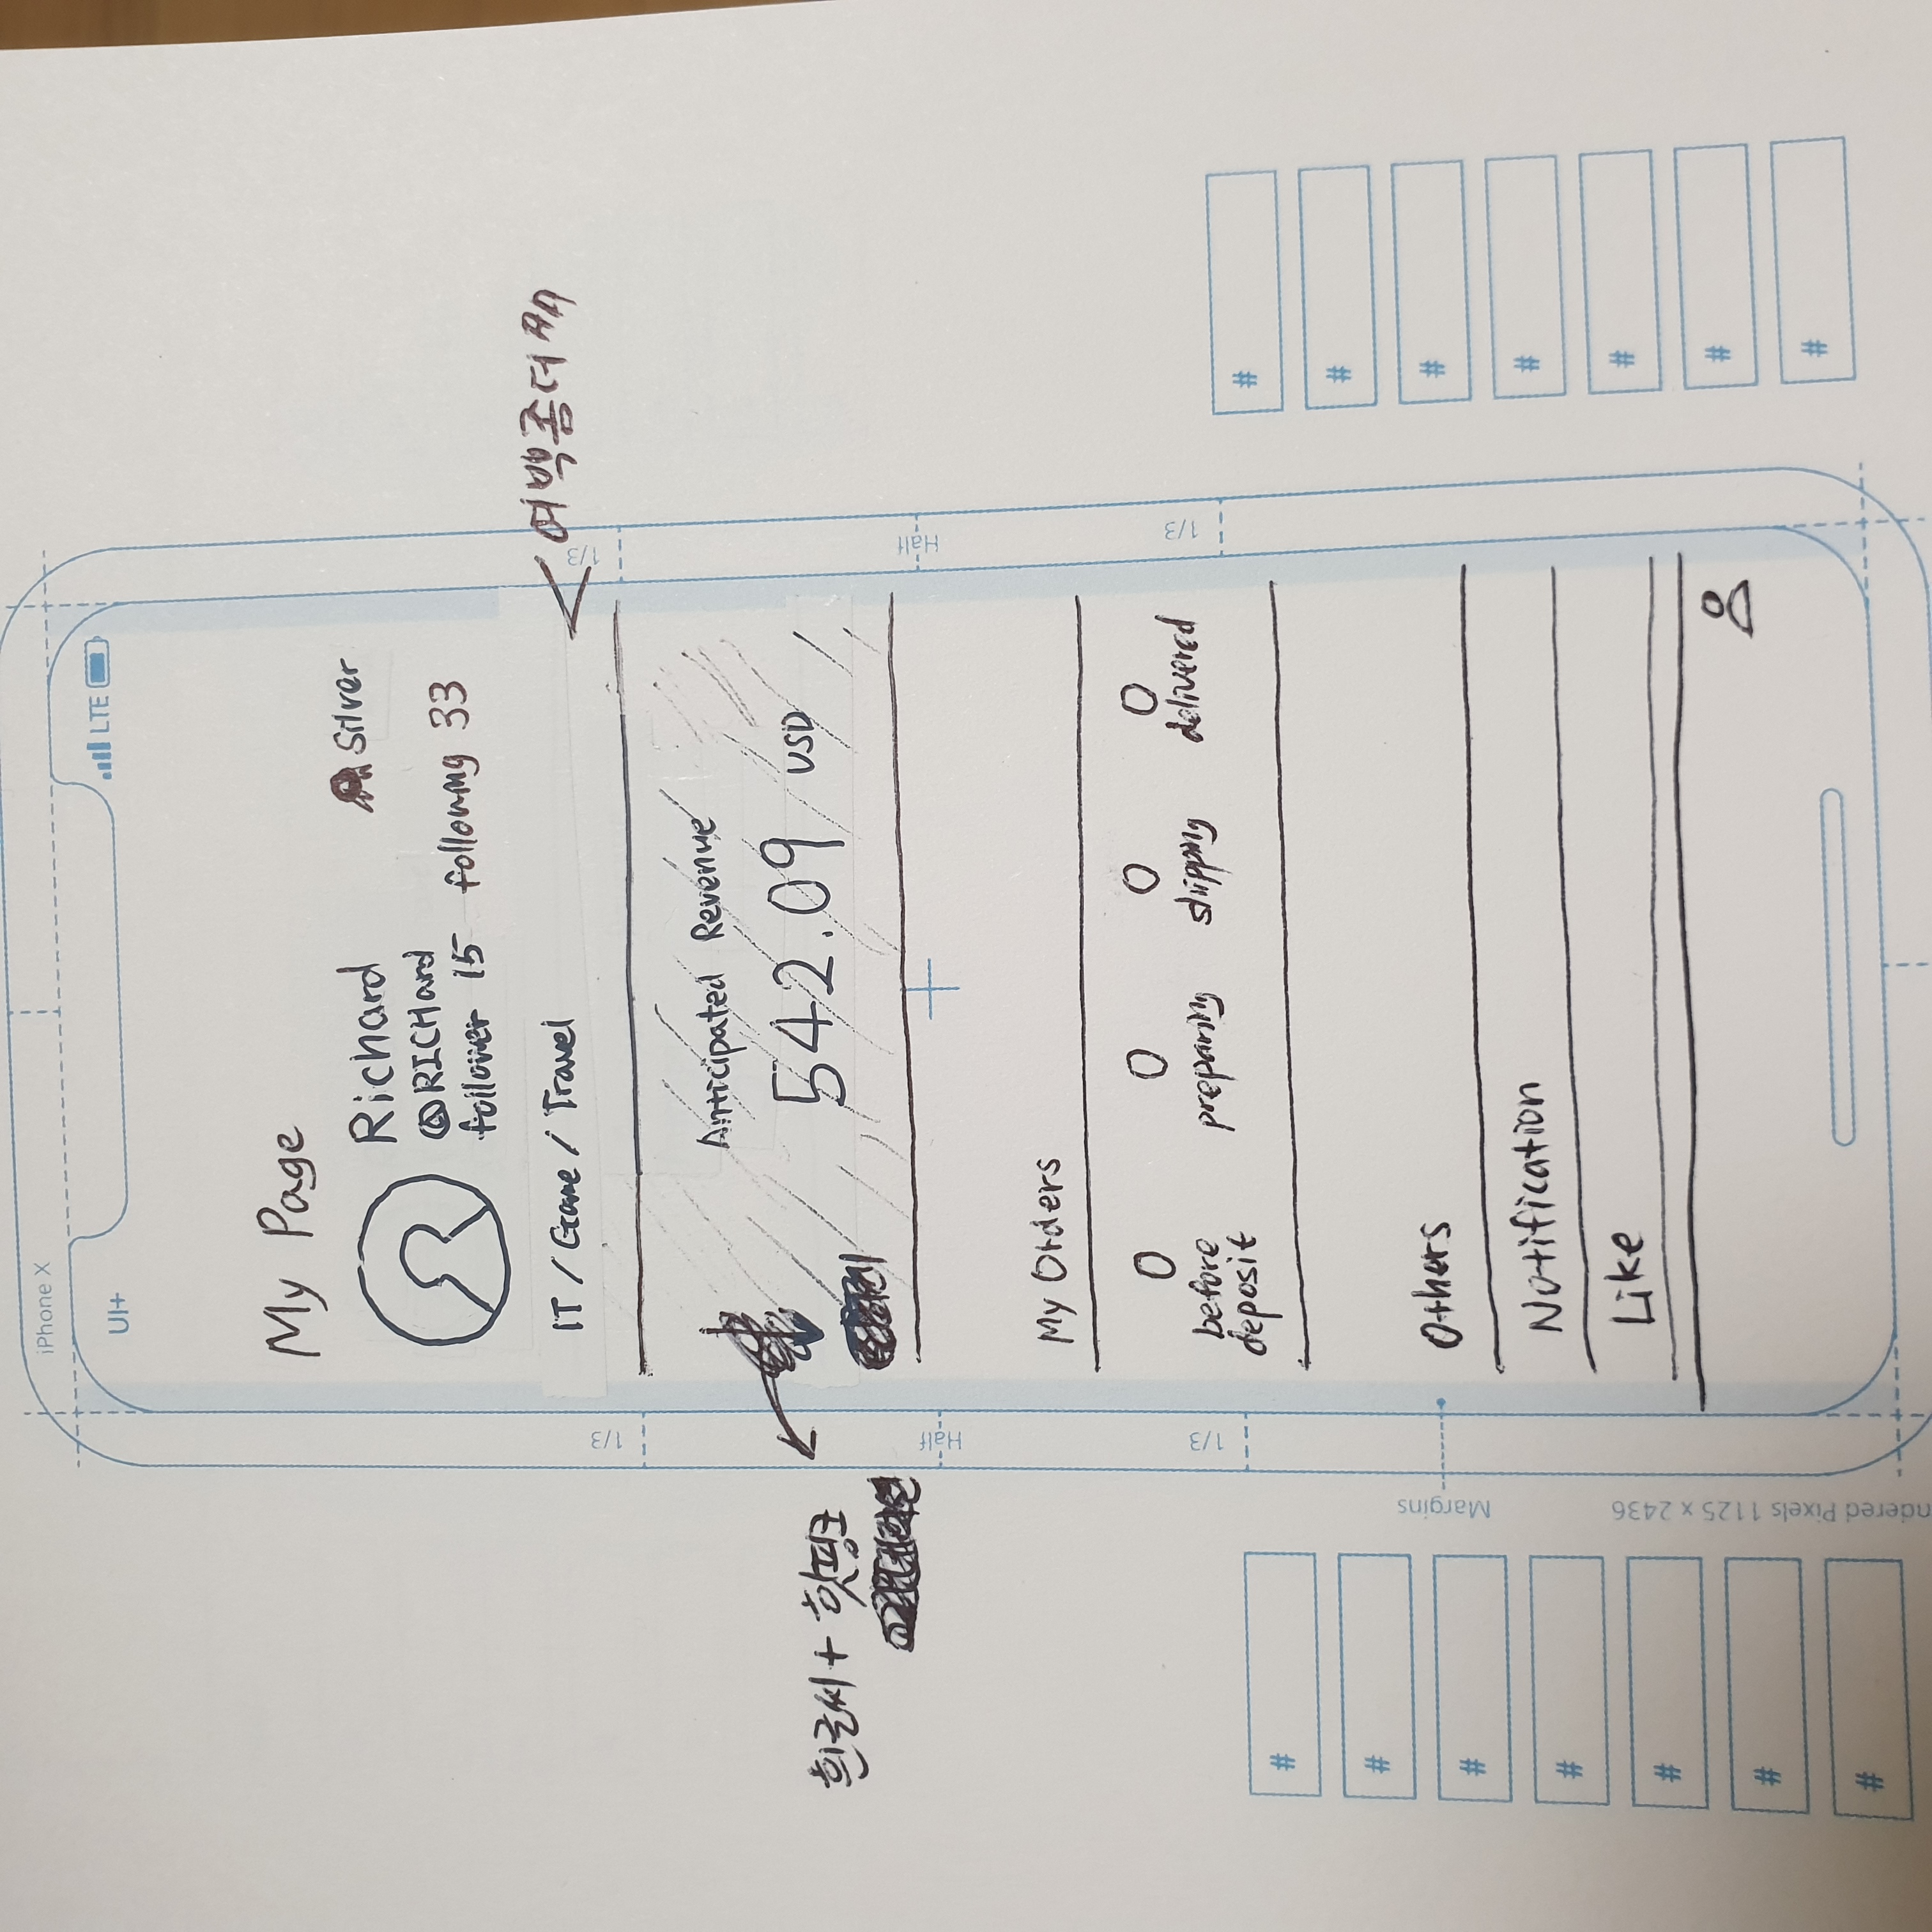 iPhone X
UI+
LTE
My Page
Richard
Silver
@RICHard
follower 15 following 33
IT / Game / Travel
여백좀더
1/3
1/3
Anticipated Revenue
542.09 USD
흰글씨 + 핫핑크
Half
Half
My Orders
0 0 0 0
before deposit
preparing
shipping
delivered
1/3
1/3
Others
Notification
Like
Margins
ndered Pixels 1125 x 2436
#
#
#
#
#
#
#
#
#
#
#
#
#
#